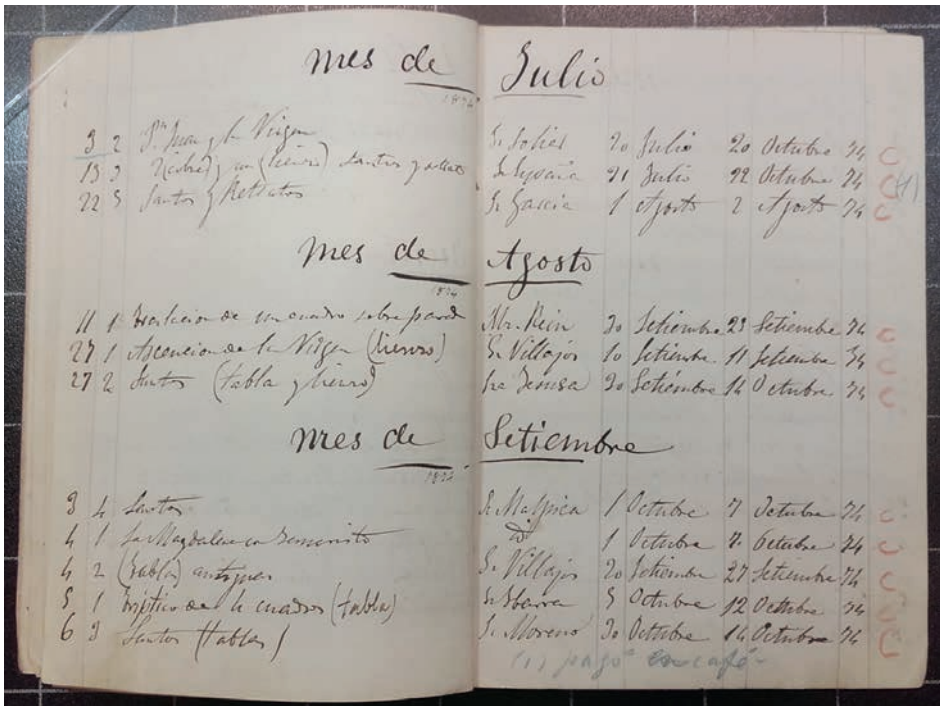 mes de Julio
1874
3 2 Sn Juan y la Virgen Sr Soler 20 Julio 20 Octubre 74
15 3 2 (cobre) y un (lienzo) santos y retrato Sr 21 Julio 22 Octubre 74 (1)
22 5 Santos y Retratos Sr Garcia 1 Agosto 2 Agosto 74
mes de Agosto
1874
11 1 Traslacion de un cuadro sobre pared Mr. Rein 30 Setiembre 23 Setiembre 74
27 1 Ascencion de la Virgen (lienzo) Sr Villajos 10 Setiembre 11 Setiembre 74
27 2 Santos (tabla y lienzo) 20 Setiembre 14 Octubre 74
mes de Setiembre
1874
3 4 Santos Sr Malpica 1 Octubre 7 Octubre 74
4 1 La Magdalena 1 Octubre 7 Octubre 74
4 2 (tablas) antiguas Sr Villajos 20 Setiembre 27 Setiembre 74
5 1 triptico de 4 cuadros (tabla) Sr Ibarra 5 Octubre 12 Octubre 74
6 3 Santos (tablas) Sr Moreno 30 Octubre 14 Octubre 74
(1) pagó en café-